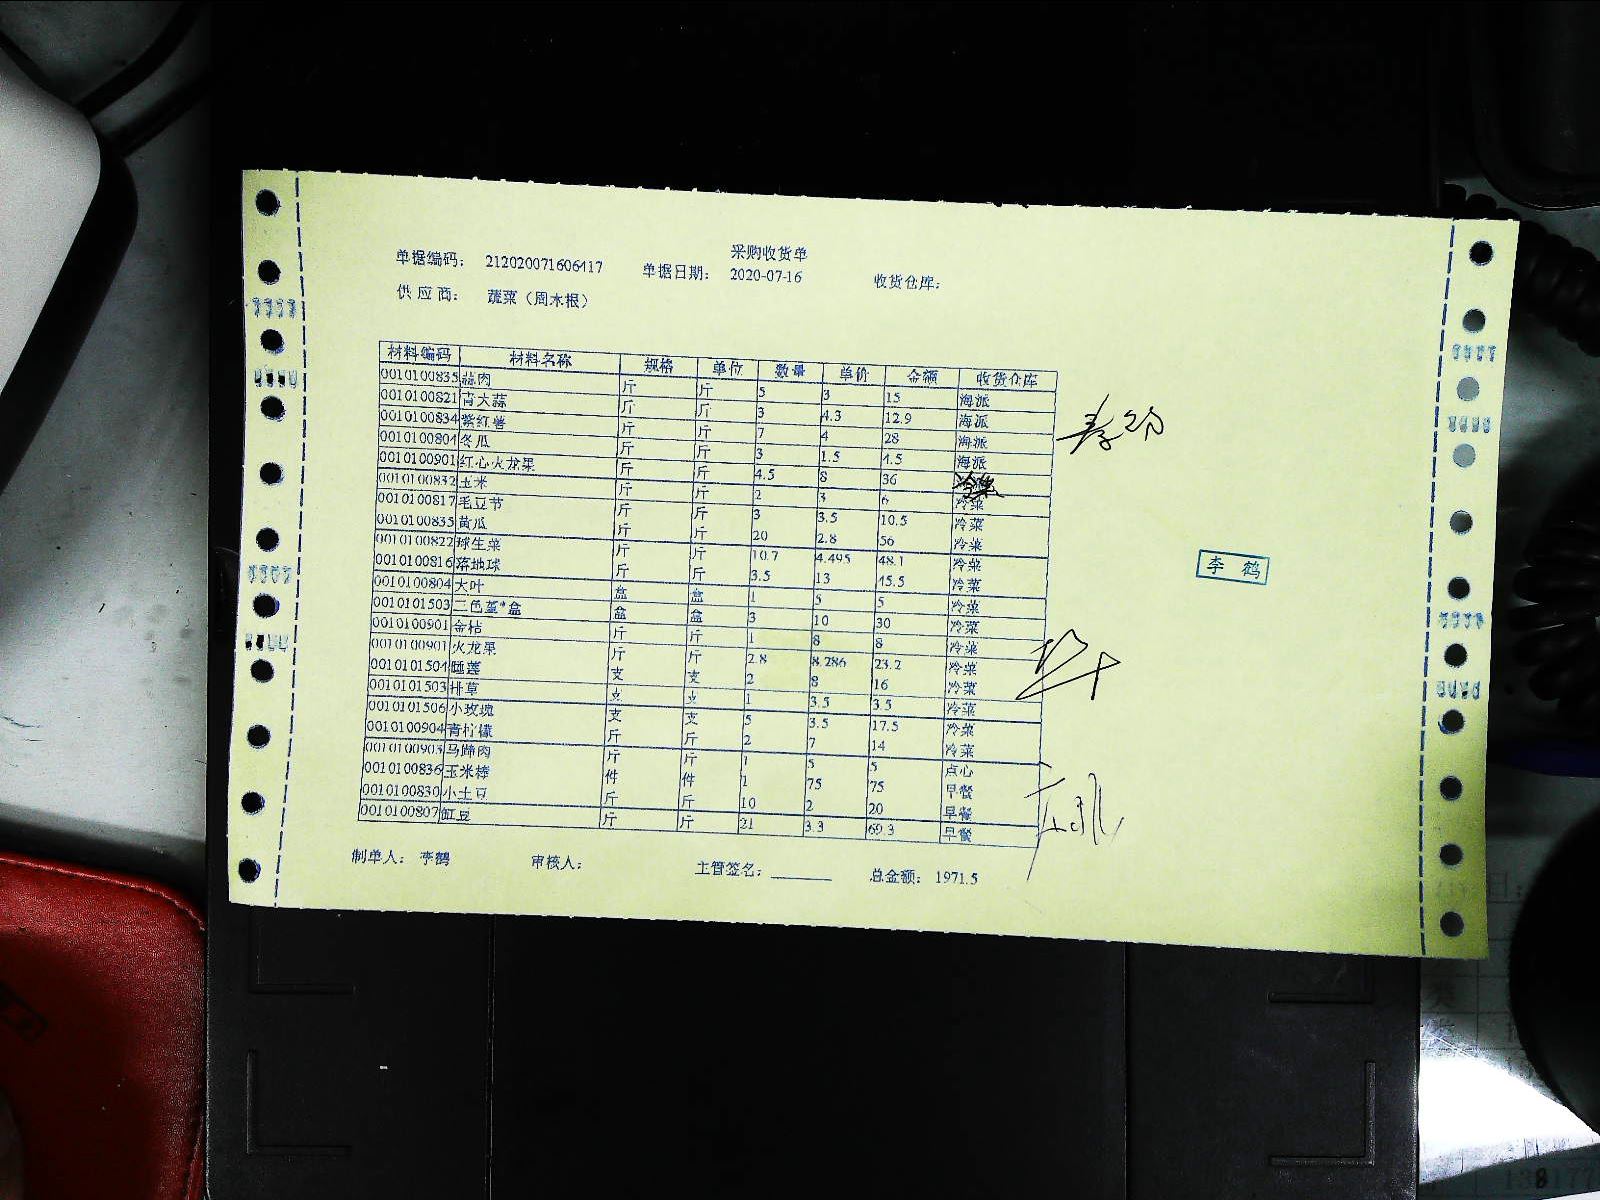 采购收货单
单据编码： 212020071606417 单据日期： 2020-07-16 收货仓库：
供应商： 蔬菜（周木根）
材料编码 材料名称 规格 单位 数量 单价 金额 收货仓库
0010100835 蒜肉 斤 斤 5 3 15 海派
0010100821 青大蒜 斤 斤 3 4.3 12.9 海派
0010100834 紫红薯 斤 斤 7 4 28 海派
0010100801 冬瓜 斤 斤 3 1.5 4.5 海派
0010100901 红心火龙果 斤 斤 4.5 8 36
0010100832 玉米 斤 斤 2 3 6 冷菜
0010100817 毛豆节 斤 斤 3 3.5 10.5 冷菜
0010100835 黄瓜 斤 斤 20 2.8 56 冷菜
0010100822 球生菜 斤 斤 10.7 4.495 48.1 冷菜
0010100816 落地球 斤 斤 3.5 13 45.5 冷菜
0010100804 大叶 盒 盒 1 5 5 冷菜
0010101503 三色堇*盒 盒 盒 3 10 30 冷菜
0010100901 金桔 斤 斤 1 8 8 冷菜
0010100901 火龙果 斤 斤 2.8 8.286 23.2 冷菜
0010101504 睡莲 支 支 2 8 16 冷菜
0010101503 排草 支 支 1 3.5 3.5 冷菜
0010101506 小玫瑰 支 支 5 3.5 17.5 冷菜
0010100904 青柠檬 斤 斤 2 7 14 冷菜
0010100903 马蹄肉 斤 斤 1 5 5 点心
0010100836 玉米棒 件 件 1 75 75 早餐
0010100830 小土豆 斤 斤 10 2 20 早餐
0010100807 缸豆 斤 斤 21 3.3 69.3 早餐
制单人： 李鹤 审核人： 主管签名： 总金额： 1971.5
李鹤